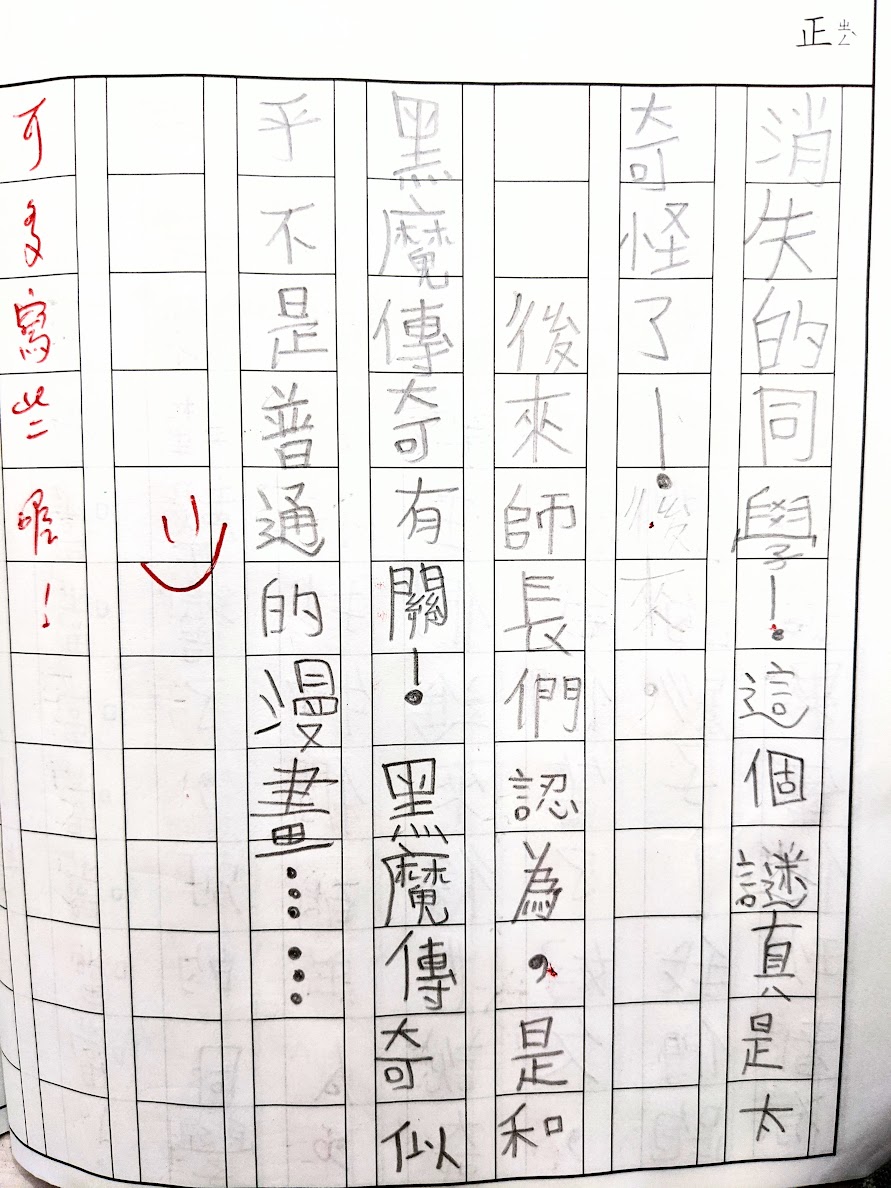 正
消失的同學!這個謎真是太
奇怪了!後來。
後來師長們認為,是和
黑魔傳奇有關!黑魔傳奇似
乎不是普通的漫畫……
可多寫些喔!